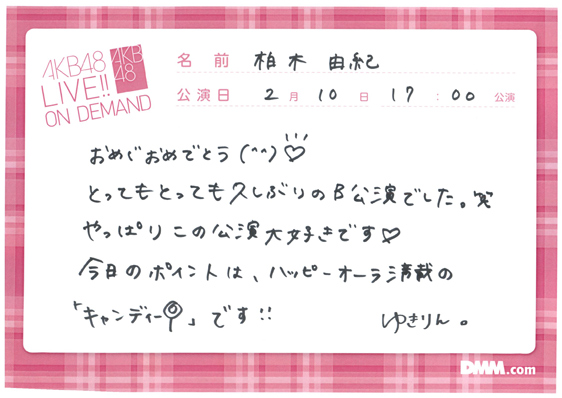 AKB48
LIVE!!
ON DEMAND
AKB
48
名前 柏木 由紀
公演日 2月10日 17:00公演
おめぐおめでとう(^^)♡
とってもとっても久しぶりのB公演でした。笑
やっぱりこの公演大好きです♡
今日のポイントは、ハッピーオーラ満載の
「キャンディー🍭」です!!
ゆきりん。
DMM.com